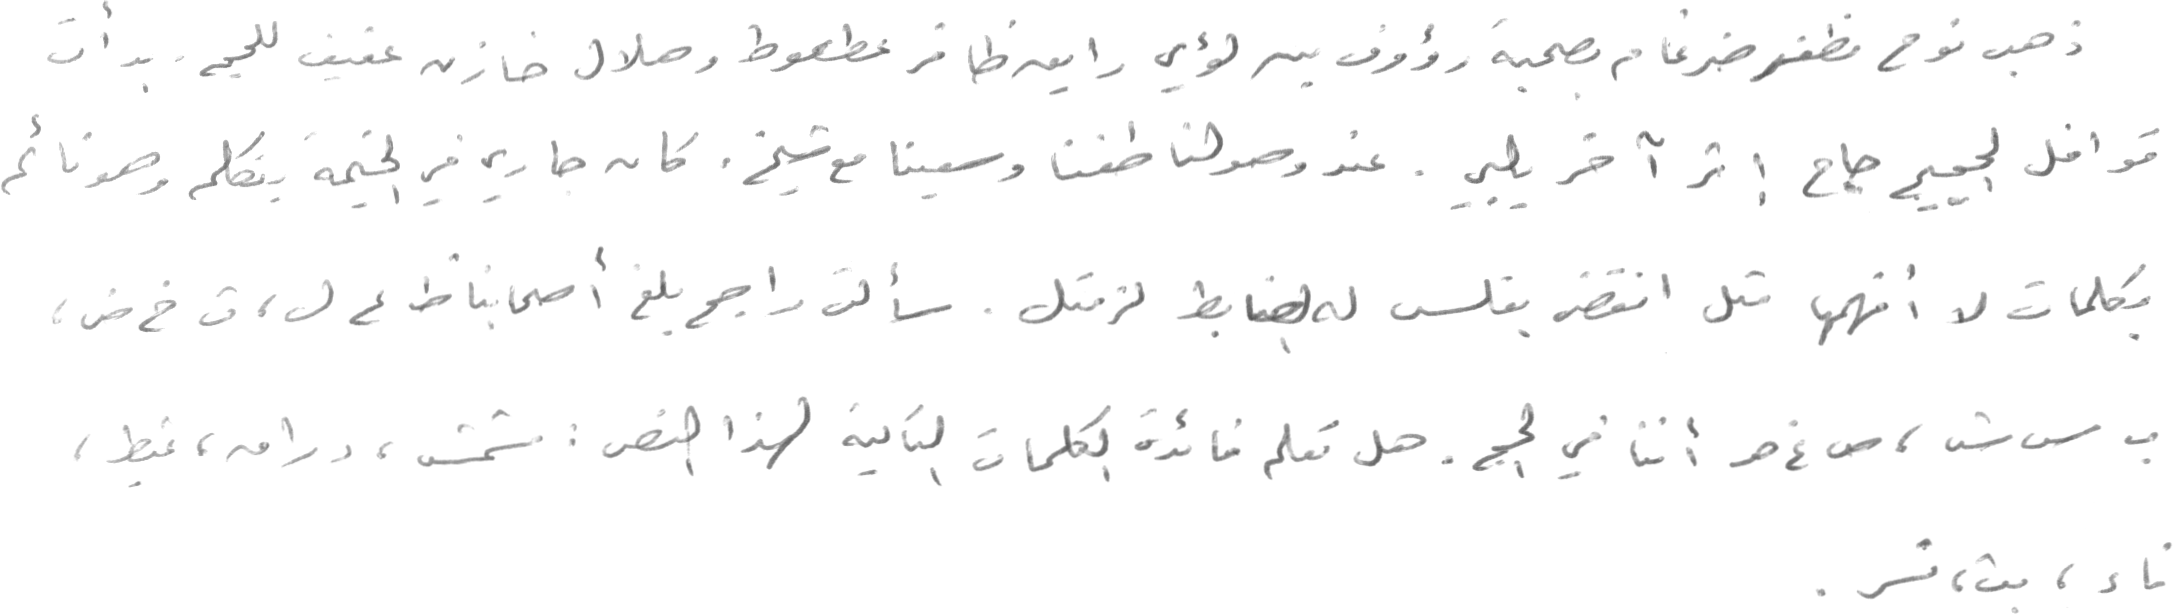 ذهب نوح مظفر ضرغام بصحبة رؤوف بن لؤي رايق ظافر عطعوط وهلال خازن عفيف للحج . بدأت
قوافل الحجيج حاج إثر آخر يلبي . عند وصولنا طفنا وسعينا مع شيخ . كان جاري في الخيمة يتكلم وهو نائم
بكلمات لا أفهمها مثل انتقض بقلس له الضابط لزمتك . سألت راجح بلغ أصحابنا ظ ع ل ، ق خ ض ،
ب س ش ، ص غ ه أننا في الحج . هل تعلم فائدة الكلمات التالية لهذا النص : مشمش ، درامه ، غيظ ،
ماء ، بث ، نسر .